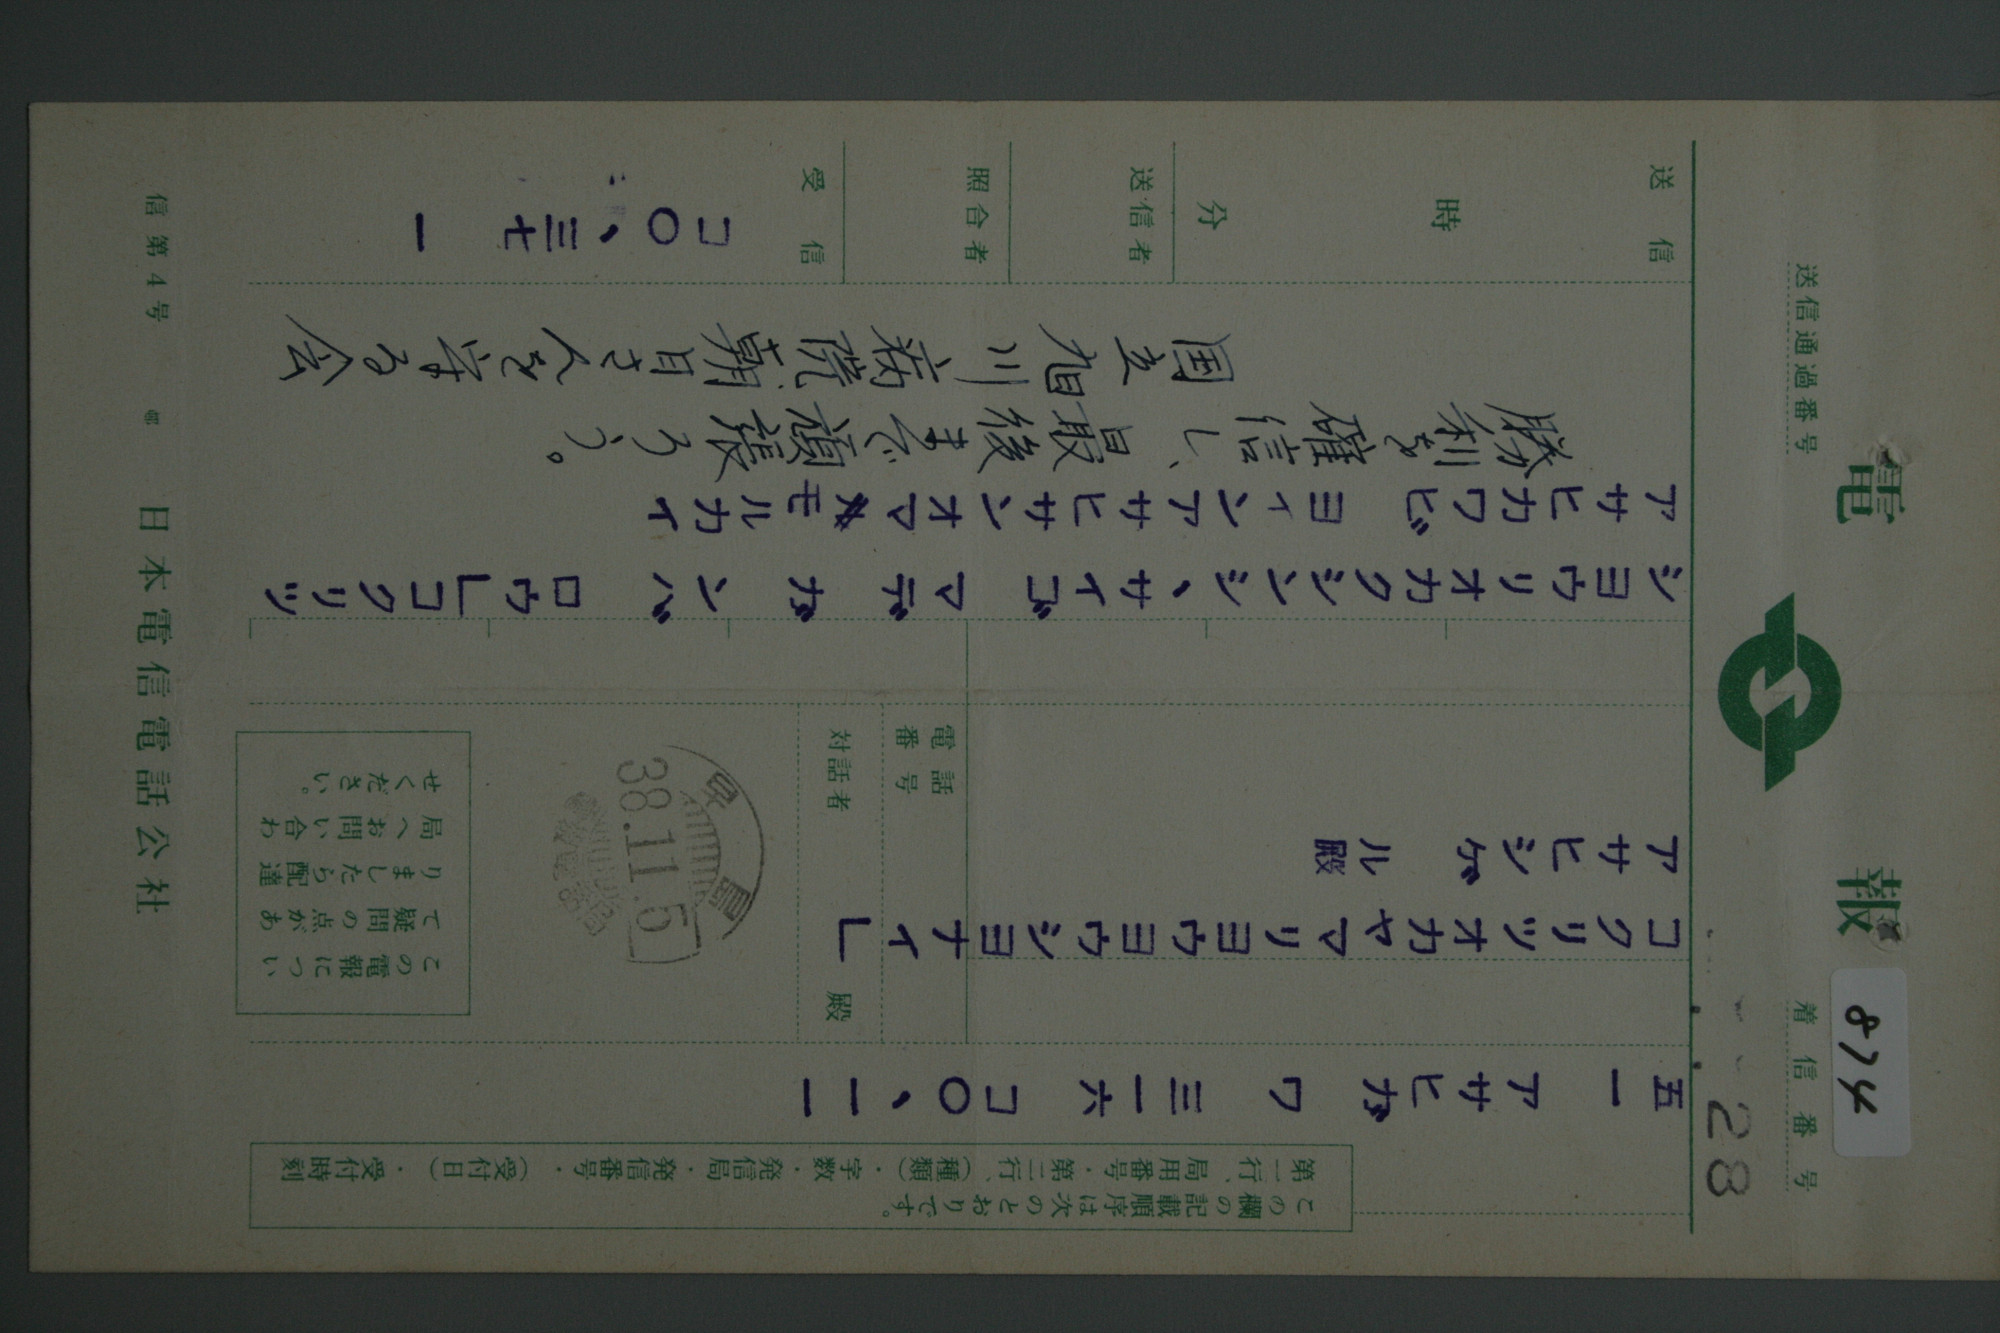 電報
874
着信番号
28
送信通過番号
この欄の記載順序は次のとおりです。
第一行、局用番号・第二行、(種類)・字数・発信局・発信番号・(受付日)・受付時刻
五一 アサヒガワ 三一六 コ〇、一一
コクリツオカヤマリヨウヨウシヨナイ」
アサヒシゲル殿
電話番号
対話者 殿
早島
38.11.6
この電報につい
て疑問の点があ
りましたら配達
局へお問い合わ
せください。
シヨウリオカクシンシ、サイゴマデガンバロウ」コクリツ
アサヒカワビヨインアサヒサンオマモルカイ
勝利を確信し、最後まで頑張ろう。
国立旭川病院朝日さんを守る会
送信 時 分
送信者
照合者
受信
コ〇、三七 一
信第4号 日本電信電話公社